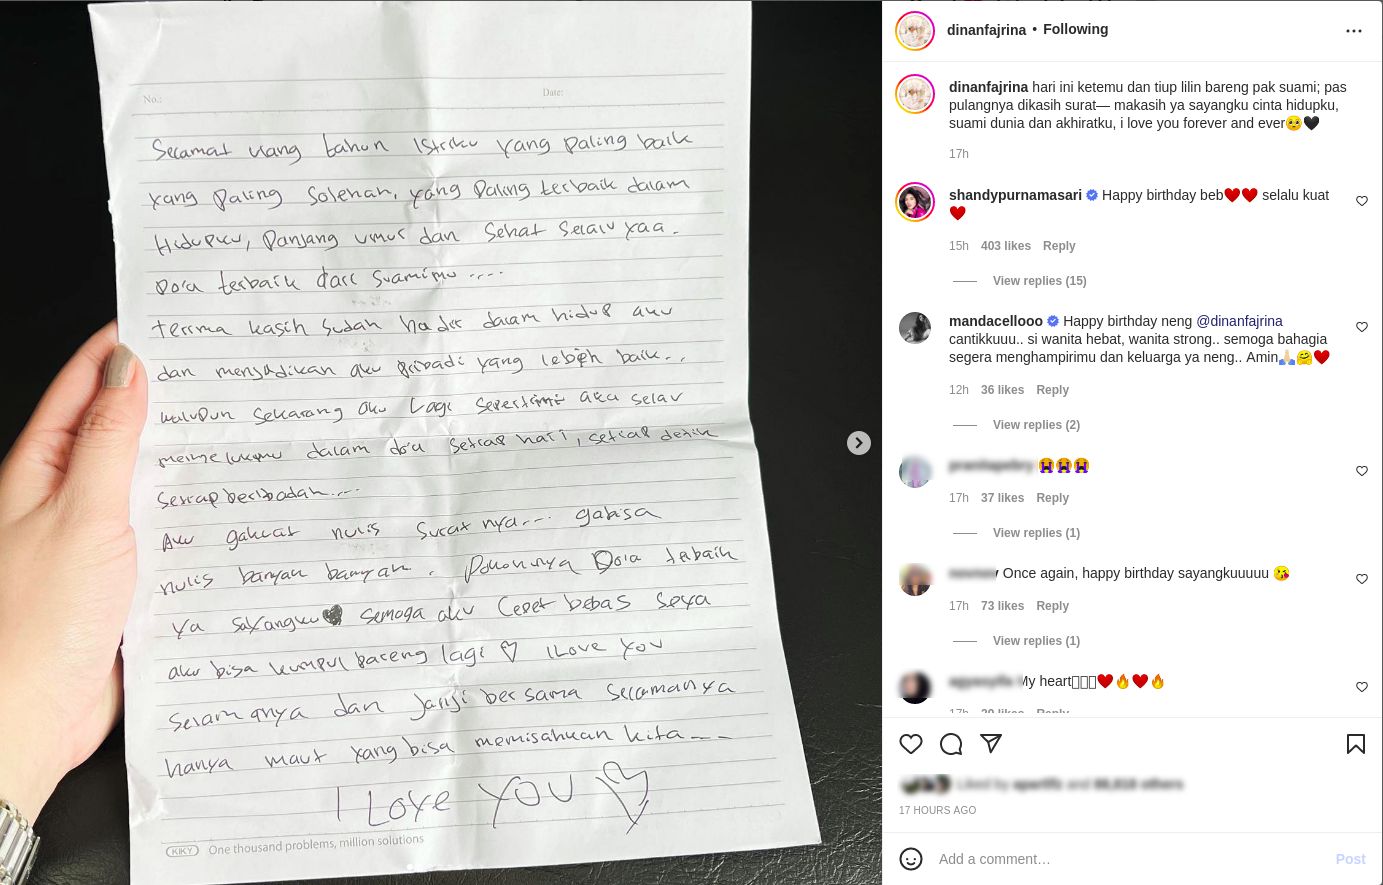 No.:
Date:
Selamat ulang tahun istriku yang paling baik
yang paling solehah, yang paling terbaik dalam
Hidupku, panjang umur dan sehat selalu yaa.
Do'a terbaik dari suamimu ....
terima kasih sudah hadir dalam hidup aku
dan menjadikan aku pribadi yang lebih baik...
walupun sekarang aku lagi seperti aku selalu
memelukmu dalam do'a setiap hari, setiap detik
Setiap beribadah....
Aku gakuat nulis surat nya... gabisa
nulis banyak banyak. pokoknya Do'a terbaik
ya sayangku🖤 semoga aku cepet bebas seya
aku bisa kumpul bareng lagi ♡ I Love You
selamanya dan janji bersama selamanya
hanya maut yang bisa memisahkan kita...
I LOVE YOU ♡
KIKY One thousand problems, million solutions
dinanfajrina • Following
dinanfajrina hari ini ketemu dan tiup lilin bareng pak suami; pas
pulangnya dikasih surat— makasih ya sayangku cinta hidupku,
suami dunia dan akhiratku, i love you forever and ever🥹🖤
17h
shandypurnamasari Happy birthday beb❤️❤️ selalu kuat
❤️
15h 403 likes Reply
View replies (15)
mandacellooo Happy birthday neng @dinanfajrina
cantikkuuu.. si wanita hebat, wanita strong.. semoga bahagia
segera menghampirimu dan keluarga ya neng.. Amin🙏🏻🤗❤️
12h 36 likes Reply
View replies (2)
😭😭😭
17h 37 likes Reply
View replies (1)
Once again, happy birthday sayangkuuuuu 😘
17h 73 likes Reply
View replies (1)
My heart▯▯▯❤️🔥❤️🔥
17h 20 likes Reply
17 HOURS AGO
Add a comment…
Post